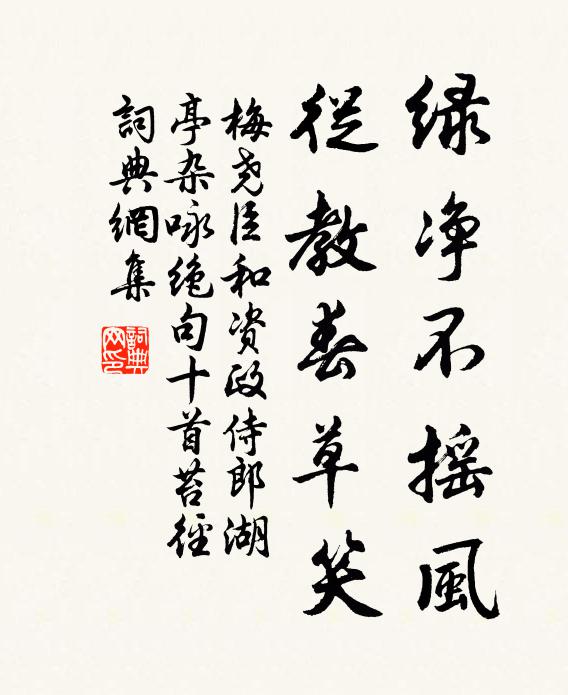 緑净不摇風
從教春草笑
梅尧臣和资政侍郎湖
亭杂咏绝句十首苔徑
詞典網集
詞典網印